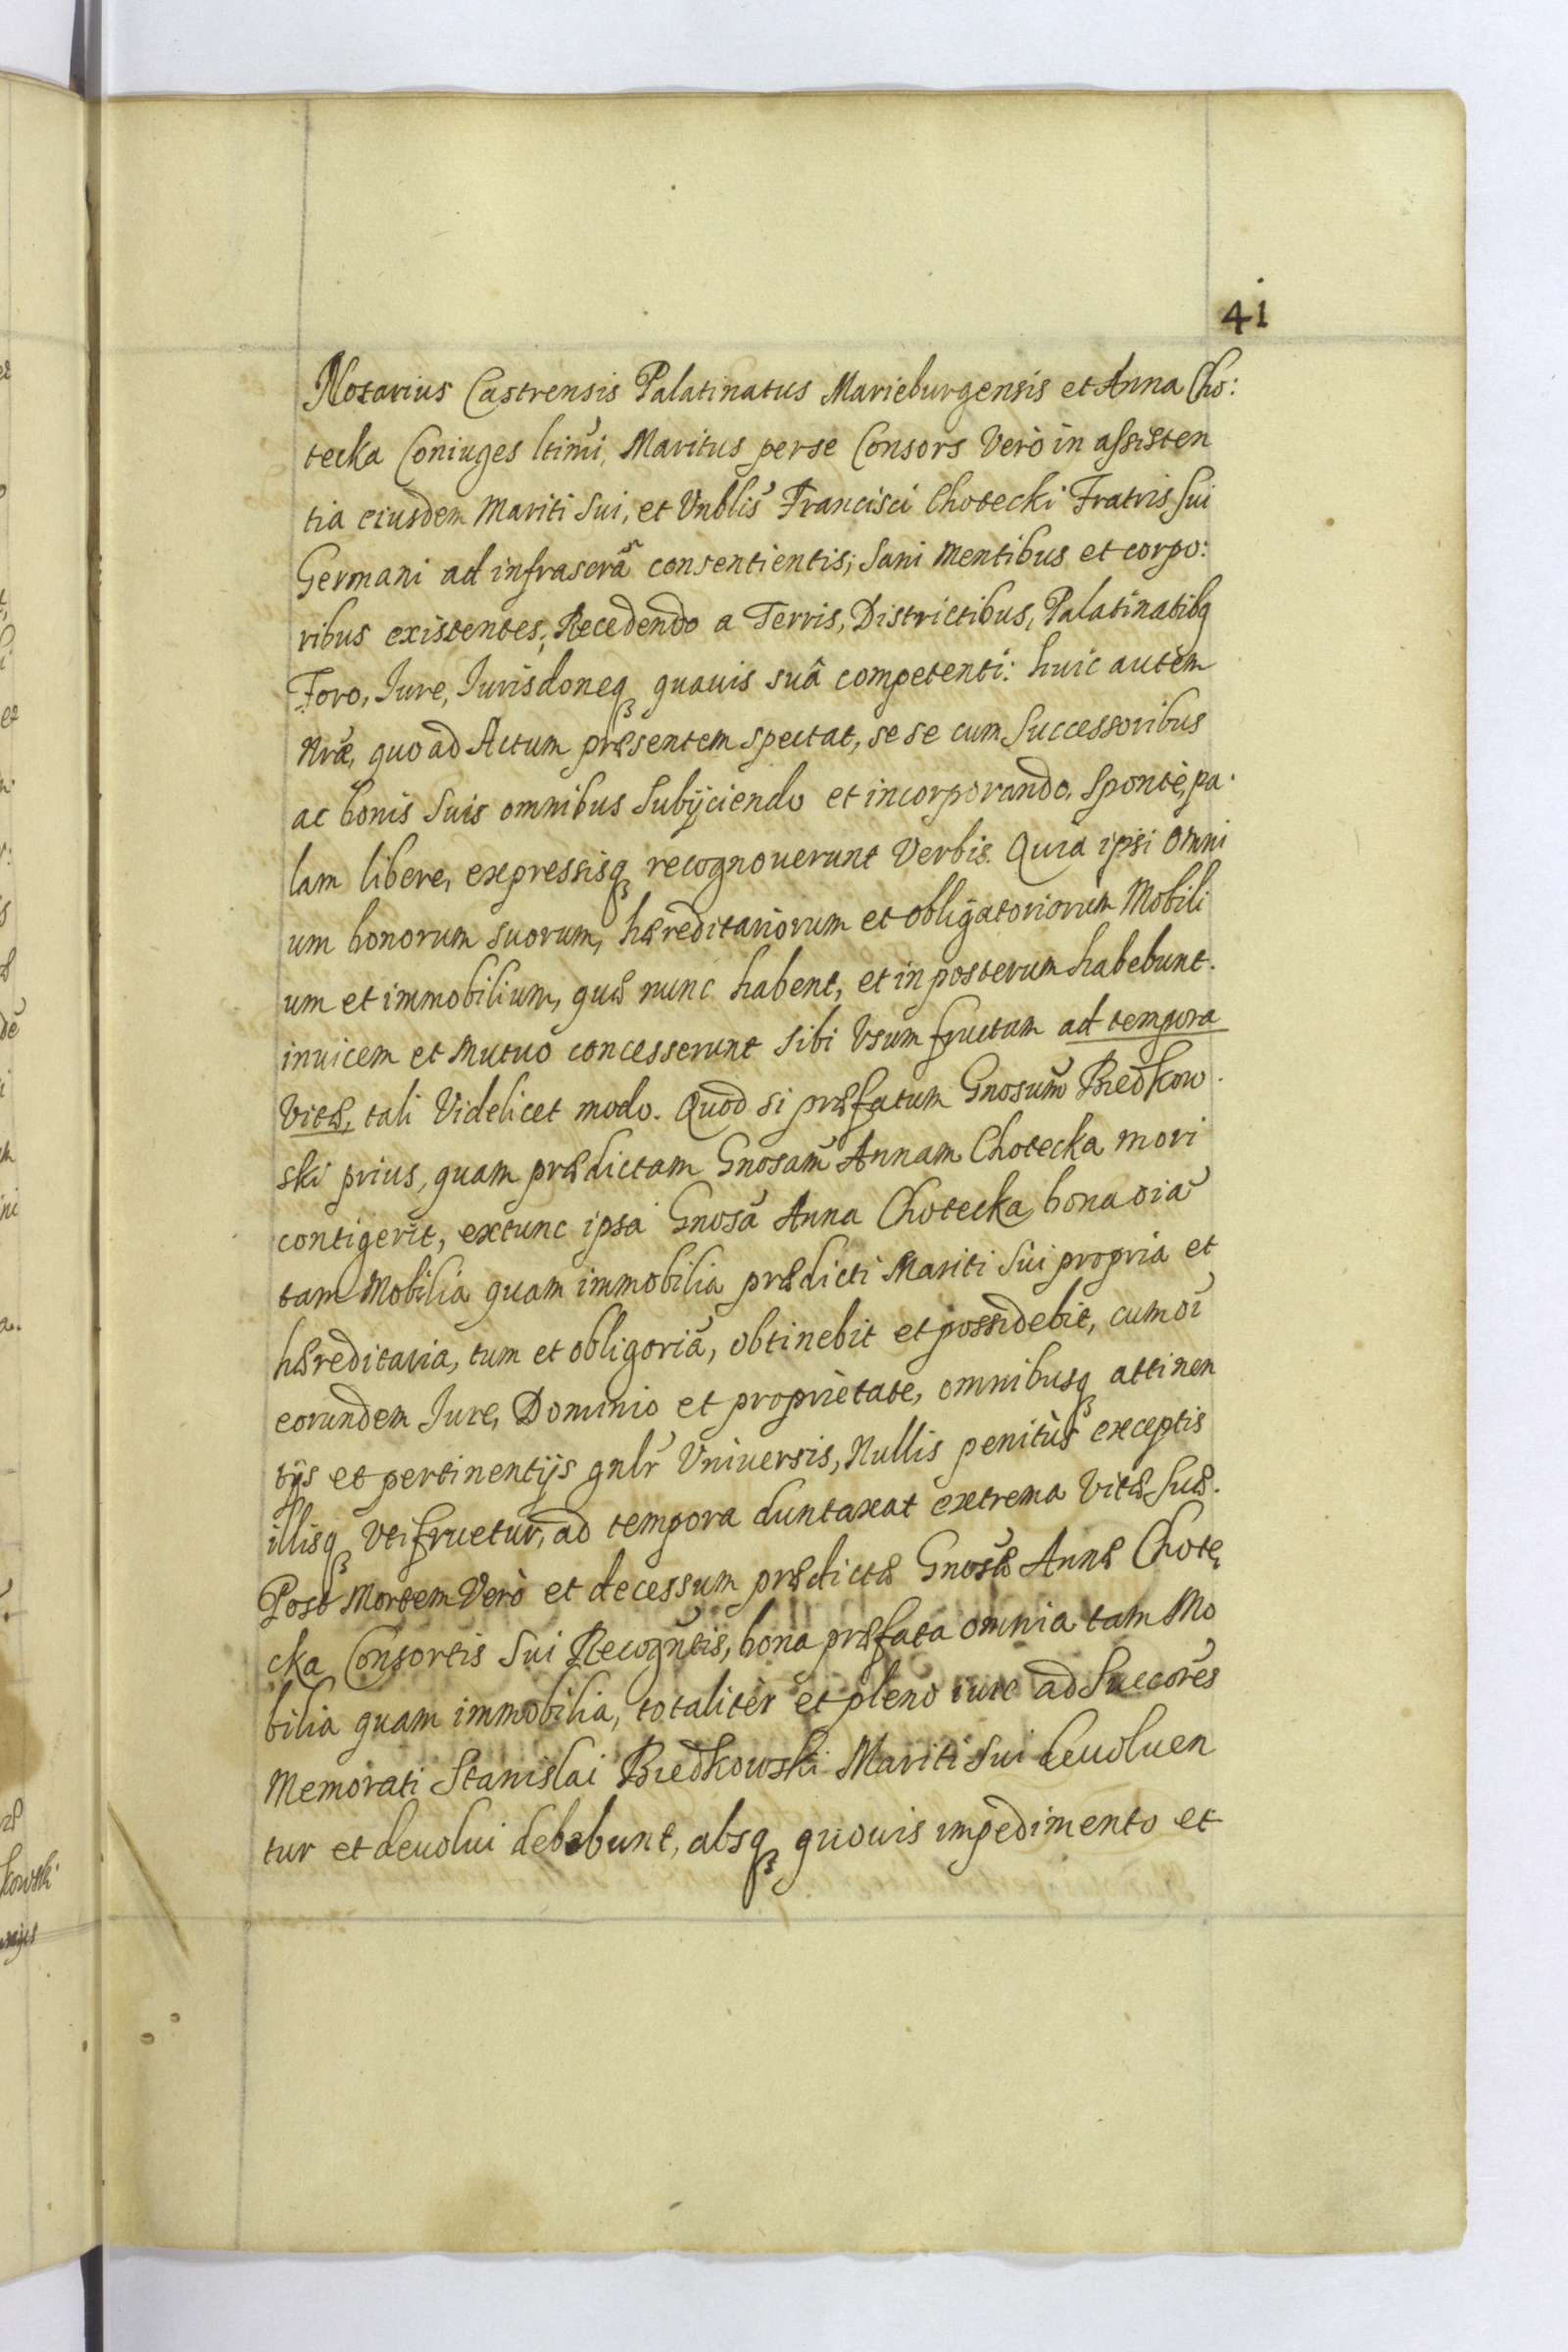 41
Notarius Castrensis Palatinatus Marieburgensis et Anna Cho:
tecka Coniuges ltimi, Maritus perse Consors Verò in assisten
tia eiusdem Mariti sui, et Vnblis Francisci Chotecki Fratris sui
Germani ad infrascrã consentientis; sani Mentibus et corpo:
ribus existentes, Recedendo a Terris, Districtibus, Palatinatibq
Foro, Iure, Iurisdoneq quauis suâ competenti: huic autèm
Nræ, quo ad Actum præsentem spectat, se se cum Successoribus
ac bonis suis omnibus subijciendo et incorporando. Spontè, pa.
lam libere, expressisq recognouerunt Verbis. Quia ipsi omni
um bonorum suorum, hæreditariorum et obligatoriorum Mobili
um et immobilium, quæ nunc habent, et in posterum habebunt.
inuicem et Mutuo concesserunt sibi Vsum fructum ad tempora
Vitæ, tali Videlicet modo. Quod si præfatum Gnosum Biedkow.
ski prius, quam prædictam Gnosam Annam Chotecka mori
contigerit, extunc ipsa Gnosa Anna Chotecka bona oia
tam Mobilia quam immobilia prædicti Mariti sui propria et
hæreditaria, tum et obligoria, obtinebit et possidebit, cum oi
eorundem Iure, Dominio et proprietate, omnibusq attinen
tijs et pertinentijs gnlr Vniuersis, Nullis penitùs exceptis
illisq Vtifruetur, ad tempora duntaxat extrema Vitæ suæ.
Post Mortem Verò et decessum prædictæ Gnosæ Annæ Chote,
cka Consortis sui Recogntis, bona præfata omnia tam Mo
bilia quam immobilia, totalitèr et pleno iure ad Succores
Memorati Stanislai Biedkowski Mariti sui deuoluen
tur et deuolui debebunt, absq quouis impedimento et